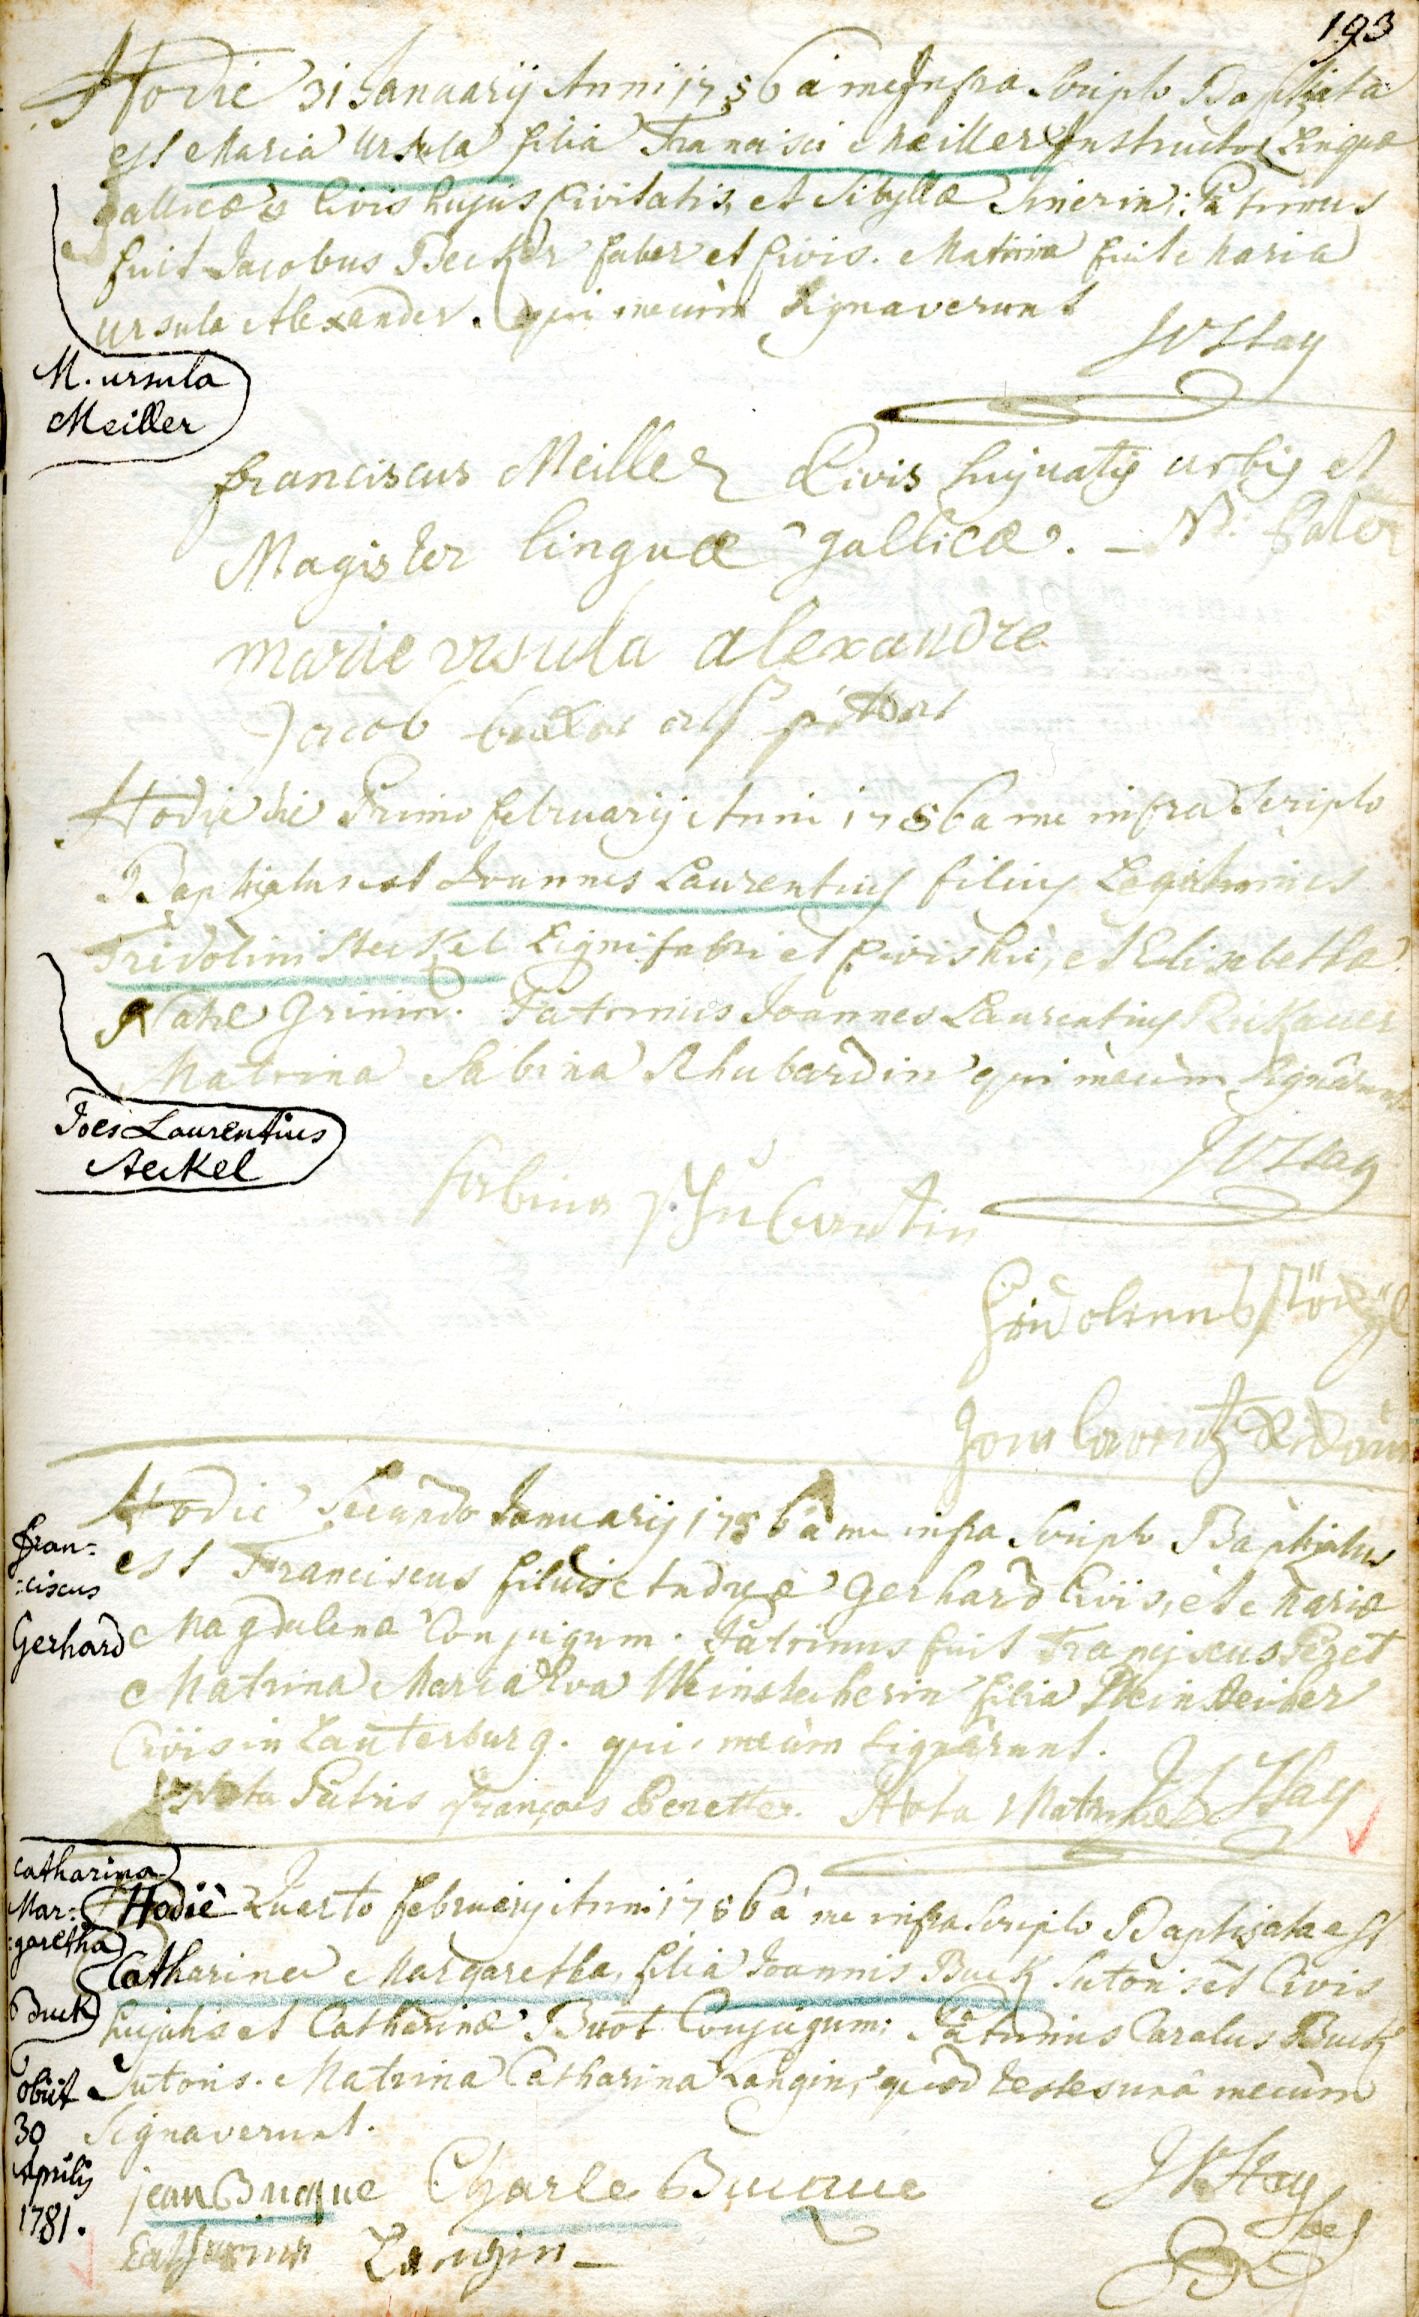 193
Hodie 31 Januarij Anni 1756 a me Infra Scripto Baptizata
est Maria Ursula filia Francisci Meiller Instructor Linguæ
gallicæ & Civis hujus Civitatis, et Sibyllæ Patrinus
fuit Jacobus Becker faber et Civis. Matrina fuit Maria
Ursula Alexander. qui mecum Signaverunt
M. ursula
Meiller
franciscus Meiller Civis hujuatis urbis et
Magister linguæ gallicæ. – Pater
marie ursula alexandre
Jacob
Hodie die Primo februarij Anni 1756 a me infra Scripto
Baptizatus est Joannes Laurentius filius Legitimus
Fridolini Steckel Lignifabri et Civis hic, et Elisabetha
Natæ Grinin. Patrinus Joannes Laurentius
Matrina Sabina Shubardin qui mecum Signarunt
Joes Laurentius
Steckel
Hodie Secundo Januarij 1756 a me infra Scripto Baptizatus
est Franciscus filius Andreæ Gerhard Civis, et Mariæ
Magdalena Conjugum. Patrinus fuit Franciscus Pezet
Matrina Maria Eva Weinstecherin filia
Civis in Lauterburg. qui mecum Signarunt.
Nota Patris françois Peretter. Nota Matrinæ
fran=
=ciscus
Gerhard
Hodiè Quarto februarij Anni 1756 a me infra Scripto Baptizata est
Catharina Margaretha, filia Joannis Buck Sutoris et Civis
hujatis et Catharinæ Buot Conjugum; Patrinus Carolus Buck
Sutoris. Matrina Catharina Langin, quòd testes unâ mecum
Signaverunt.
catharina
Mar=
=garetha
Buck
obiit
30
Aprilis
1781.
jean Buque Charle Buque
Langin